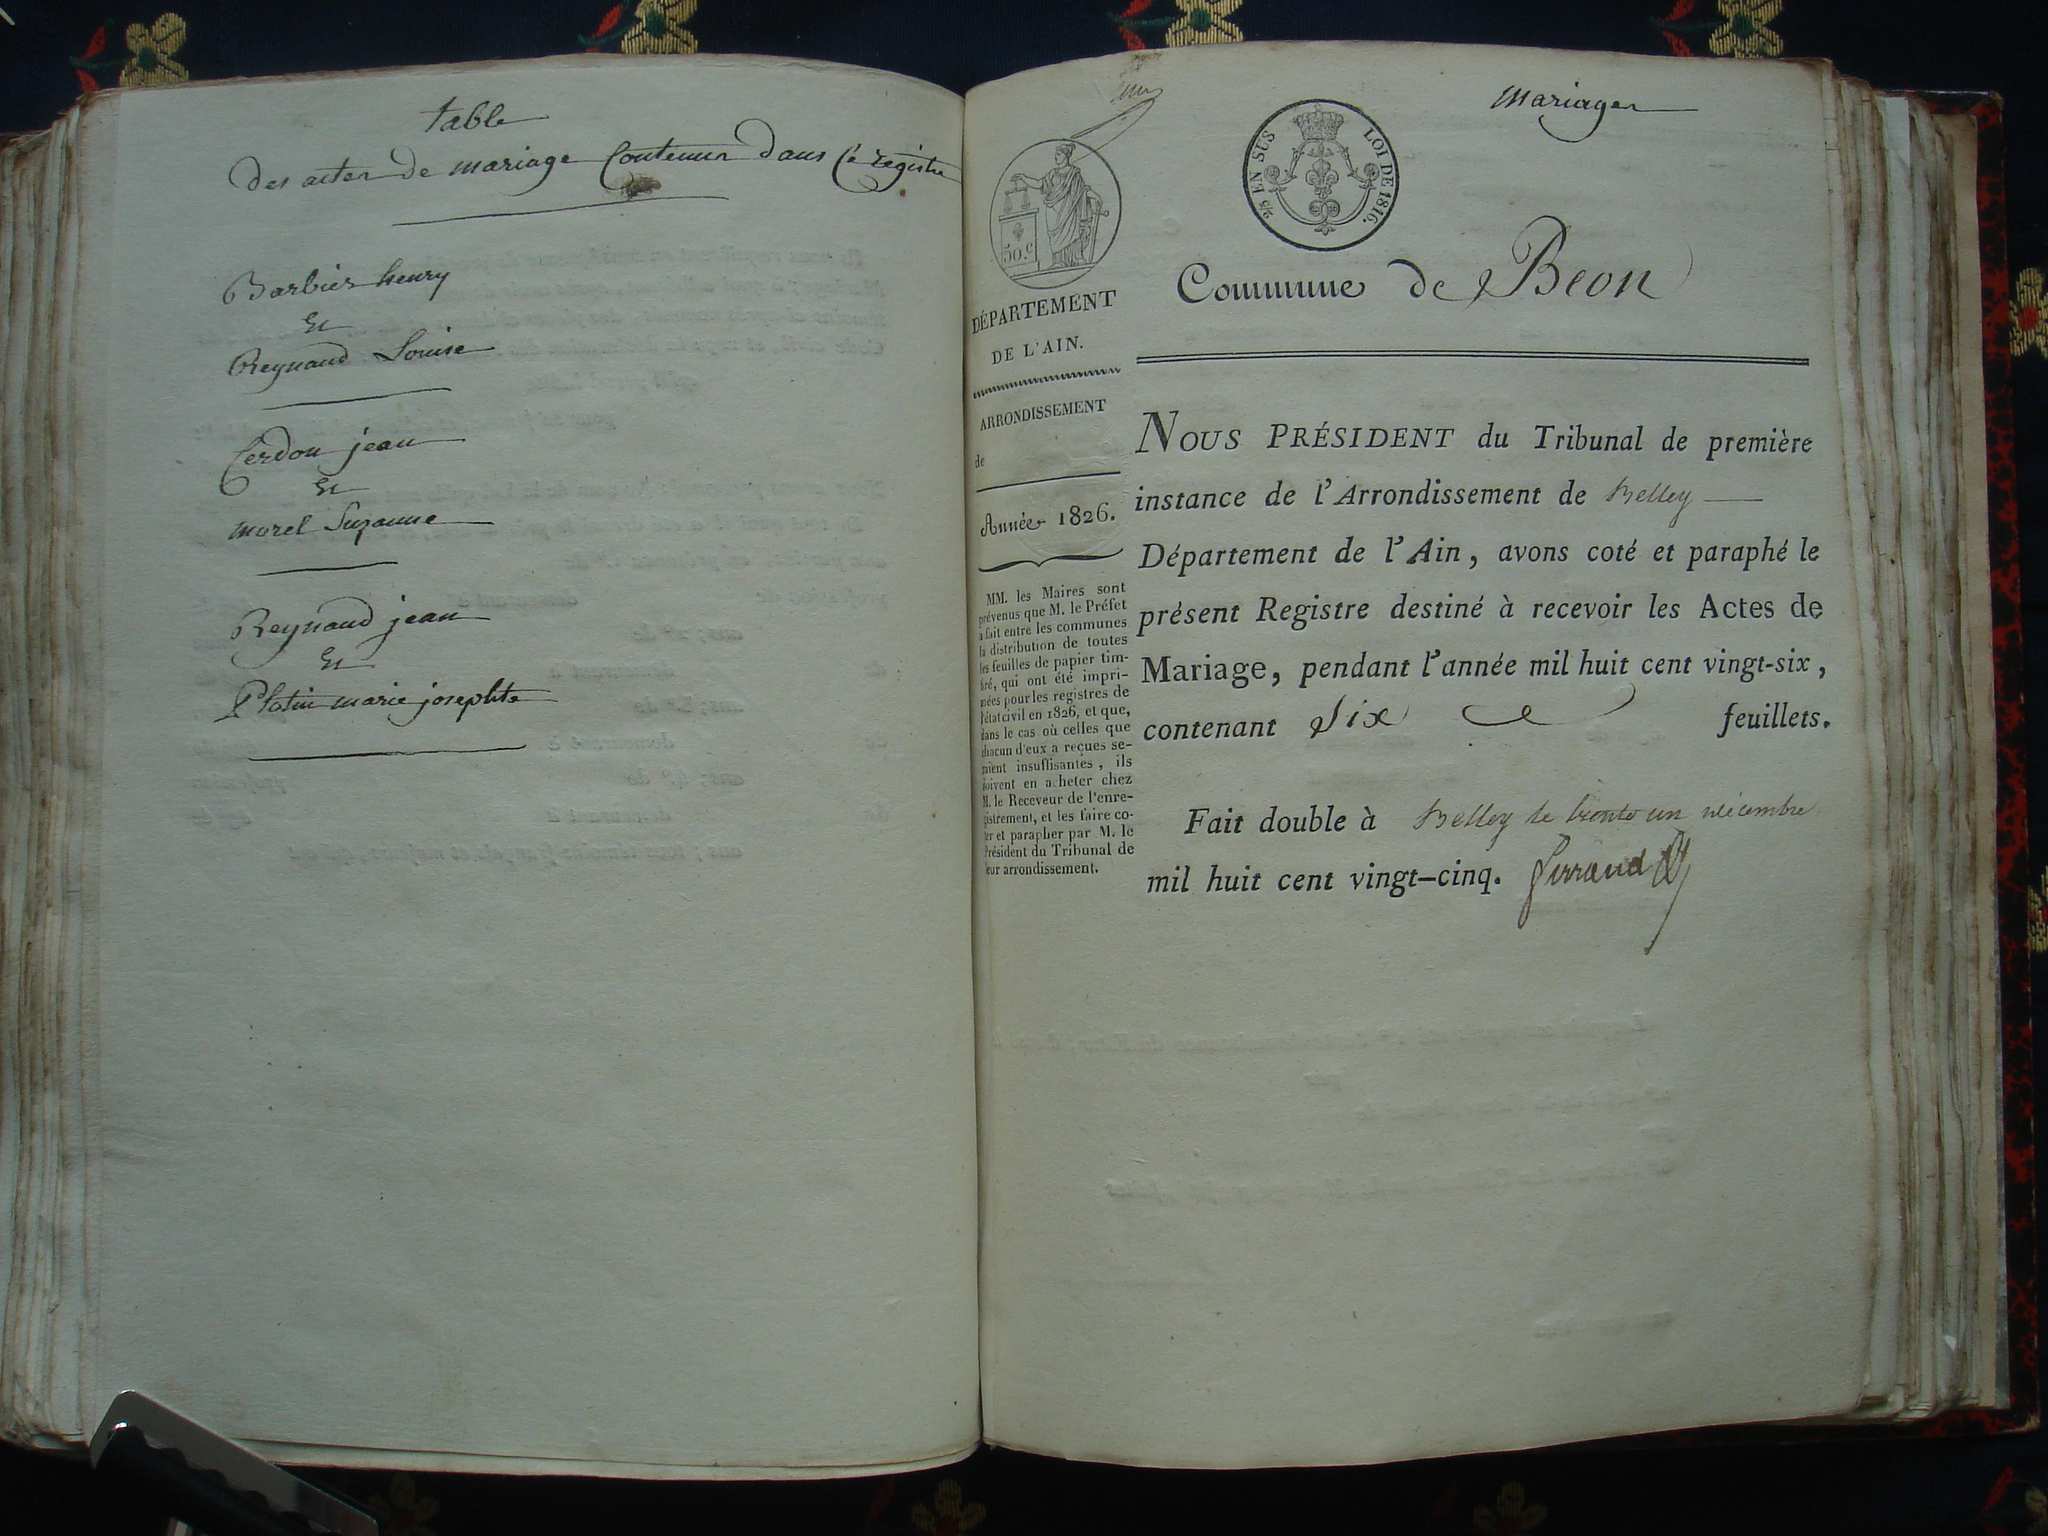 table
des actes de mariage Contenus dans Ce registre
Barbier henry
Et
Reynaud Louise
Cerdon jean
Et
morel Suzanne
Reynaud jean
Et
Platin marie josephte
mariages
50 c
2/5 EN SUS LOI DE 1816.
DÉPARTEMENT
DE L'AIN.
ARRONDISSEMENT
de
Année 1826.
MM. les Maires sont
prévenus que M. le Préfet
a fait entre les communes
la distribution de toutes
les feuilles de papier tim-
bré, qui ont été impri-
mées pour les registres de
l'état civil en 1826, et que,
dans le cas où celles que
chacun d'eux a reçues se-
raient insuffisantes, ils
doivent en acheter chez
M. le Receveur de l'enre-
gistrement, et les faire co-
ter et parapher par M. le
Président du Tribunal de
leur arrondissement.
Commune de Beon
NOUS PRÉSIDENT du Tribunal de première
instance de l'Arrondissement de Belley
Département de l'Ain, avons coté et paraphé le
présent Registre destiné à recevoir les Actes de
Mariage, pendant l'année mil huit cent vingt-six,
contenant Six feuillets.
Fait double à Belley le trente un décembre
mil huit cent vingt-cinq.